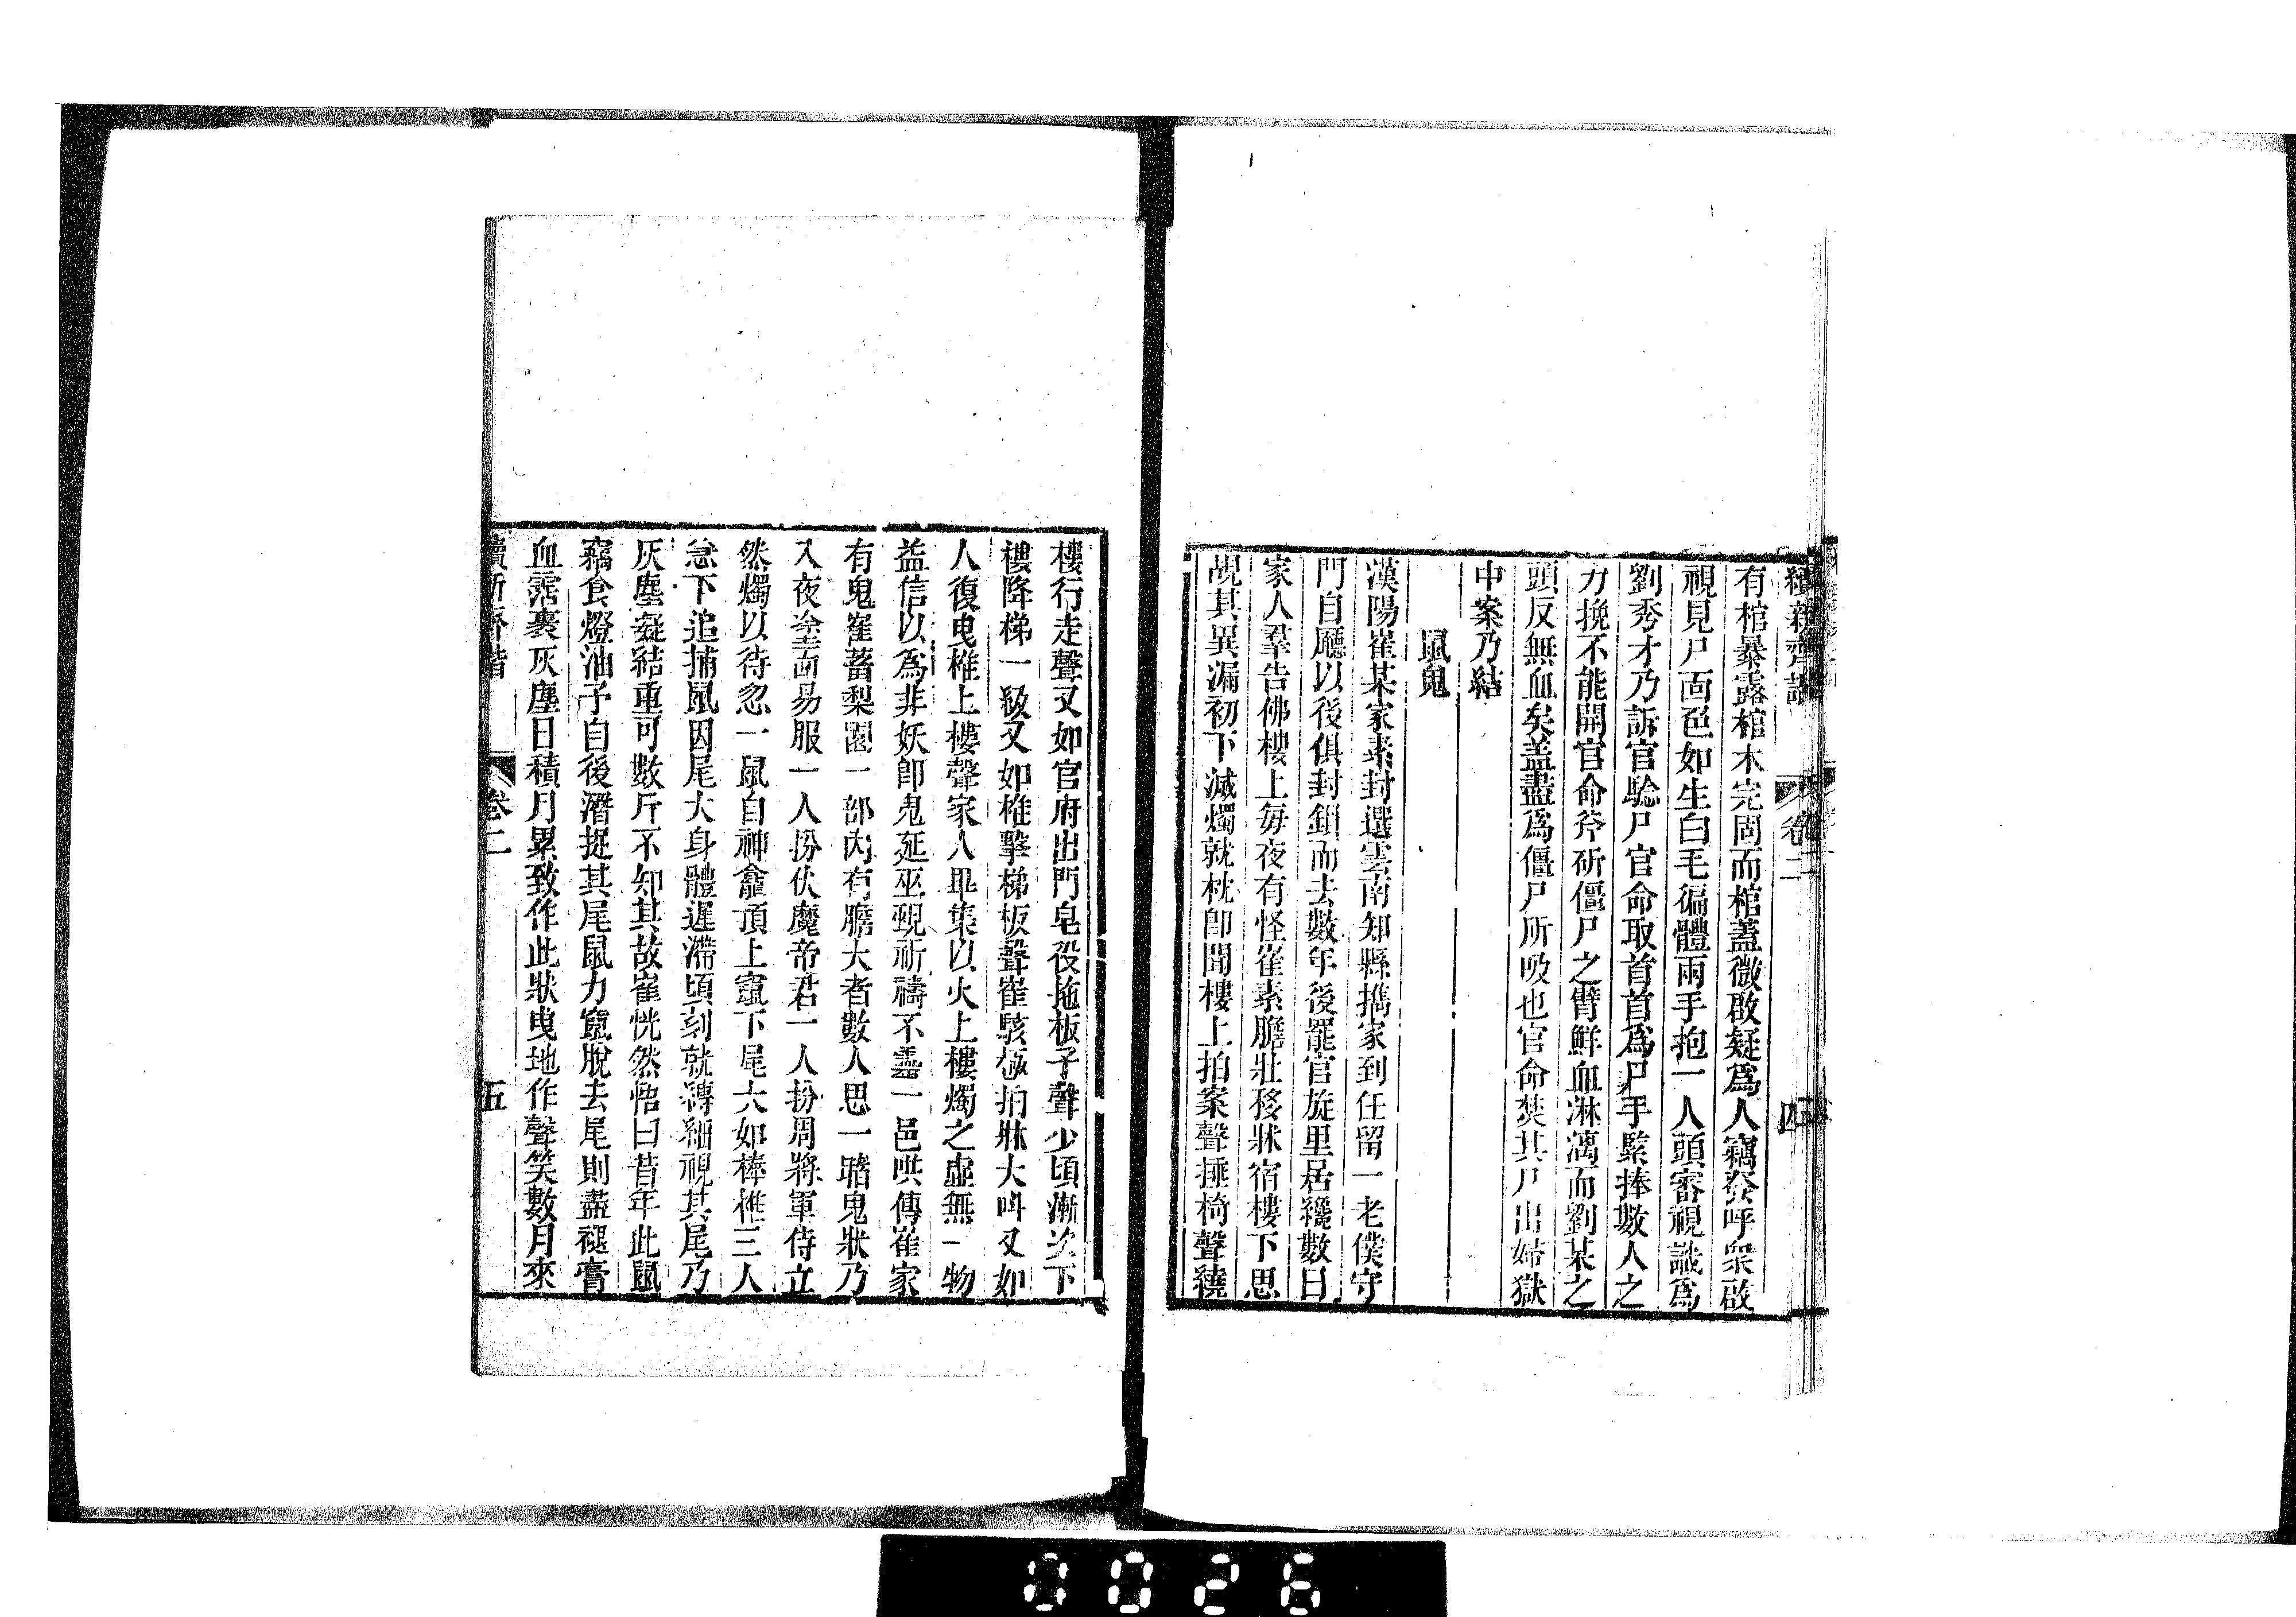 續新齊諧 卷二 四
有棺暴露棺木完固而棺蓋微啟疑爲人竊發呼衆啟
視見尸面色如生白毛徧體兩手抱一人頭審視識爲
劉秀才乃訴官驗尸官命取首首爲尸手緊捧數人之
力挽不能開官命斧斫僵尸之臂鮮血淋漓而劉某之
頭反無血矣盖盡爲僵尸所吸也官命焚其尸出婦獄
中案乃結
鼠鬼
漢陽崔某家素封選雲南知縣攜家到任留一老僕守
門自廳以後俱封鎖而去數年後罷官旋里居纔數日
家人羣告佛樓上每夜有怪崔素膽壯移牀宿樓下思
覘其異漏初下滅燭就枕卽聞樓上拍案聲捶椅聲繞
樓行走聲又如官府出門皂役拖板子聲少頃漸次下
樓降梯一級又如椎擊梯板聲崔駭極拍牀大呌又如
人復曳椎上樓聲家人畢集以火上樓燭之虛無一物
益信以爲非妖卽鬼延巫覡祈禱不靈一邑哄傳崔家
有鬼崔蓄梨園一部內有膽大者數人思一睹鬼狀乃
入夜塗面易服一人扮伏魔帝君一人扮周將軍侍立
然燭以待忽一鼠自神龕頂上竄下尾大如棒椎三人
急下追捕鼠因尾大身體遲滯頃刻就縛細視其尾乃
灰塵凝結重可數斤不知其故崔恍然悟曰昔年此鼠
竊食燈油予自後潛捉其尾鼠力竄脫去尾則盡褪膏
血霑裹灰塵日積月累致作此狀曳地作聲笑數月來
續新齊諧 卷二 五
0026